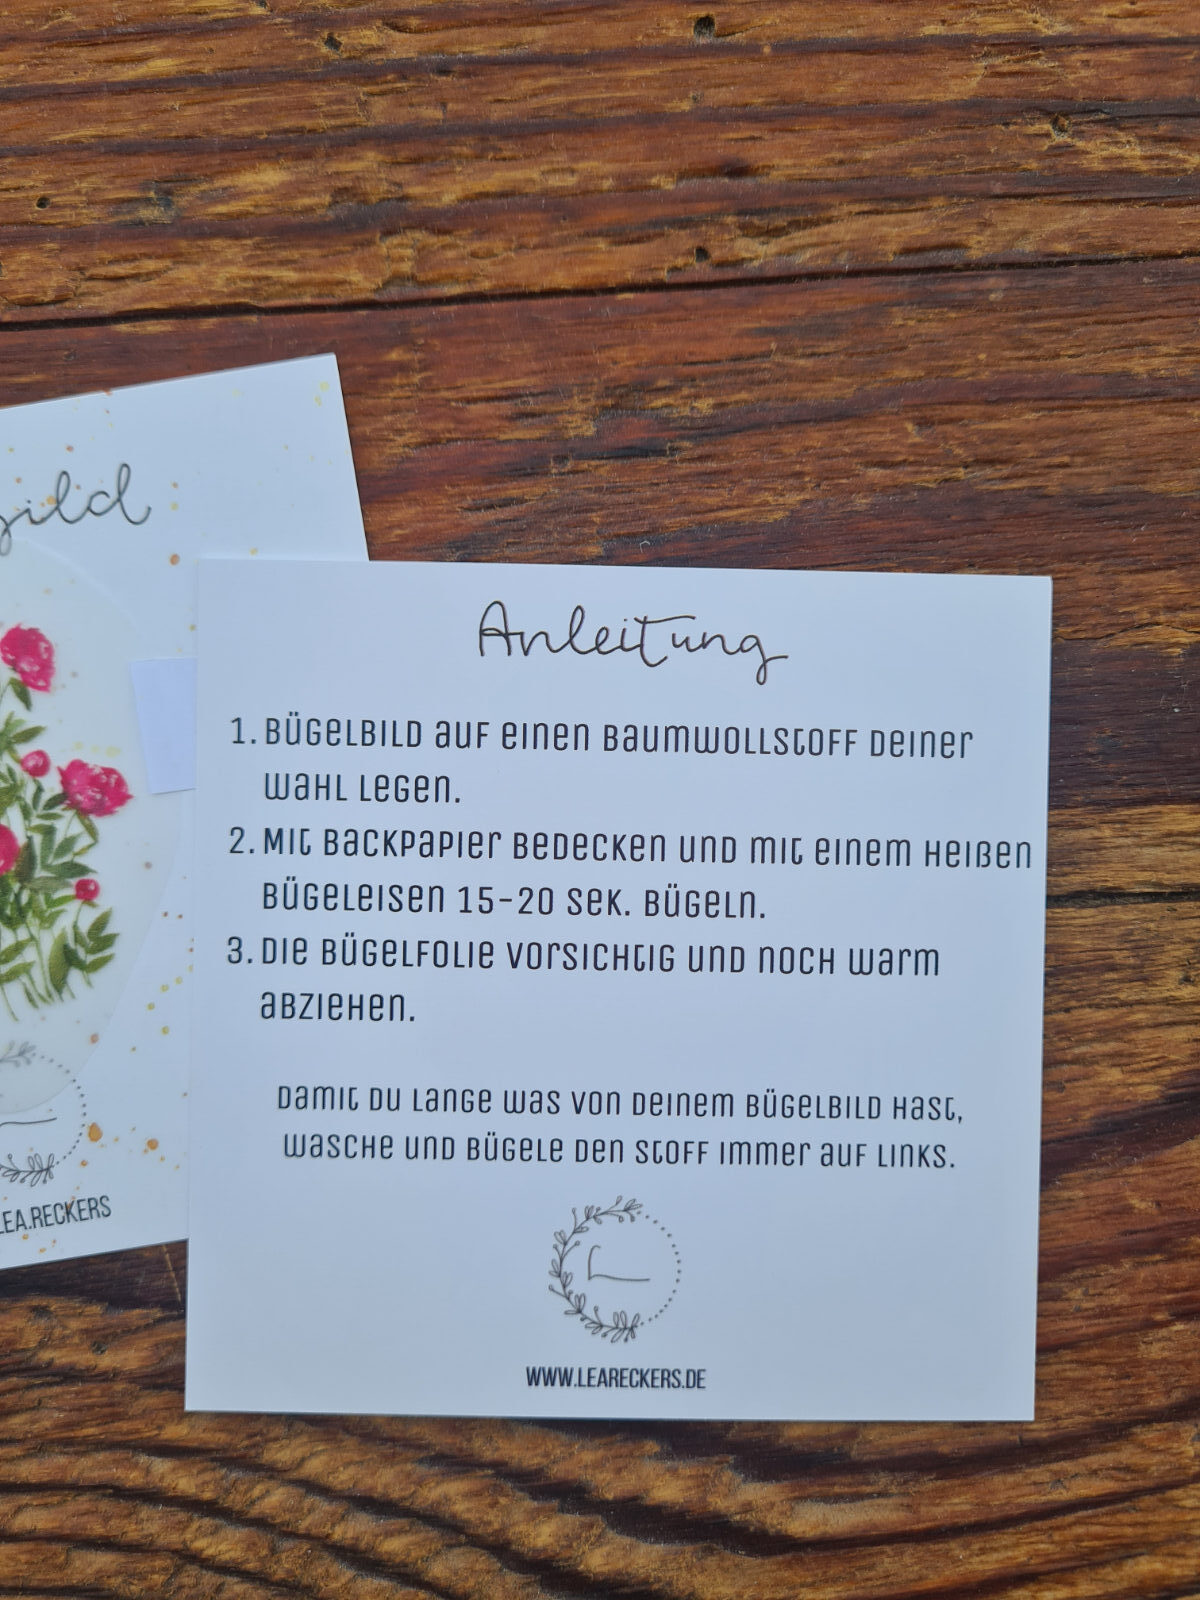 Anleitung
1. Bügelbild auf einen Baumwollstoff deiner
Wahl legen.
2. Mit Backpapier bedecken und mit einem heißen
Bügeleisen 15-20 Sek. bügeln.
3. Die Bügelfolie vorsichtig und noch warm
abziehen.
Damit du lange was von deinem Bügelbild hast,
wasche und bügele den Stoff immer auf links.
L
WWW.LEARECKERS.DE
LEA.RECKERS